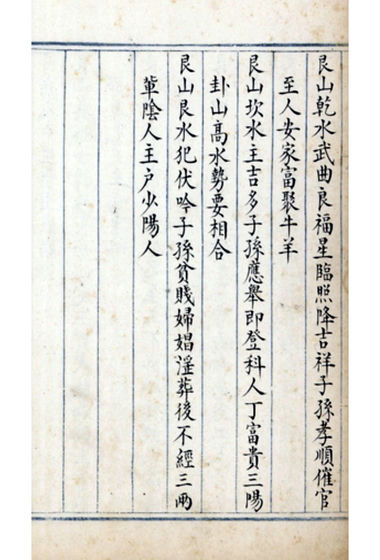 艮山乾水武曲良福星臨照降吉祥子孫孝順催官
至人安家富聚牛羊
艮山坎水主吉多子孫應舉即登科人丁富貴三陽
卦山高水勢要相合
艮山艮水犯伏吟子孫貧賤婦娼滛葬後不經三兩
輩陰人主户少陽人